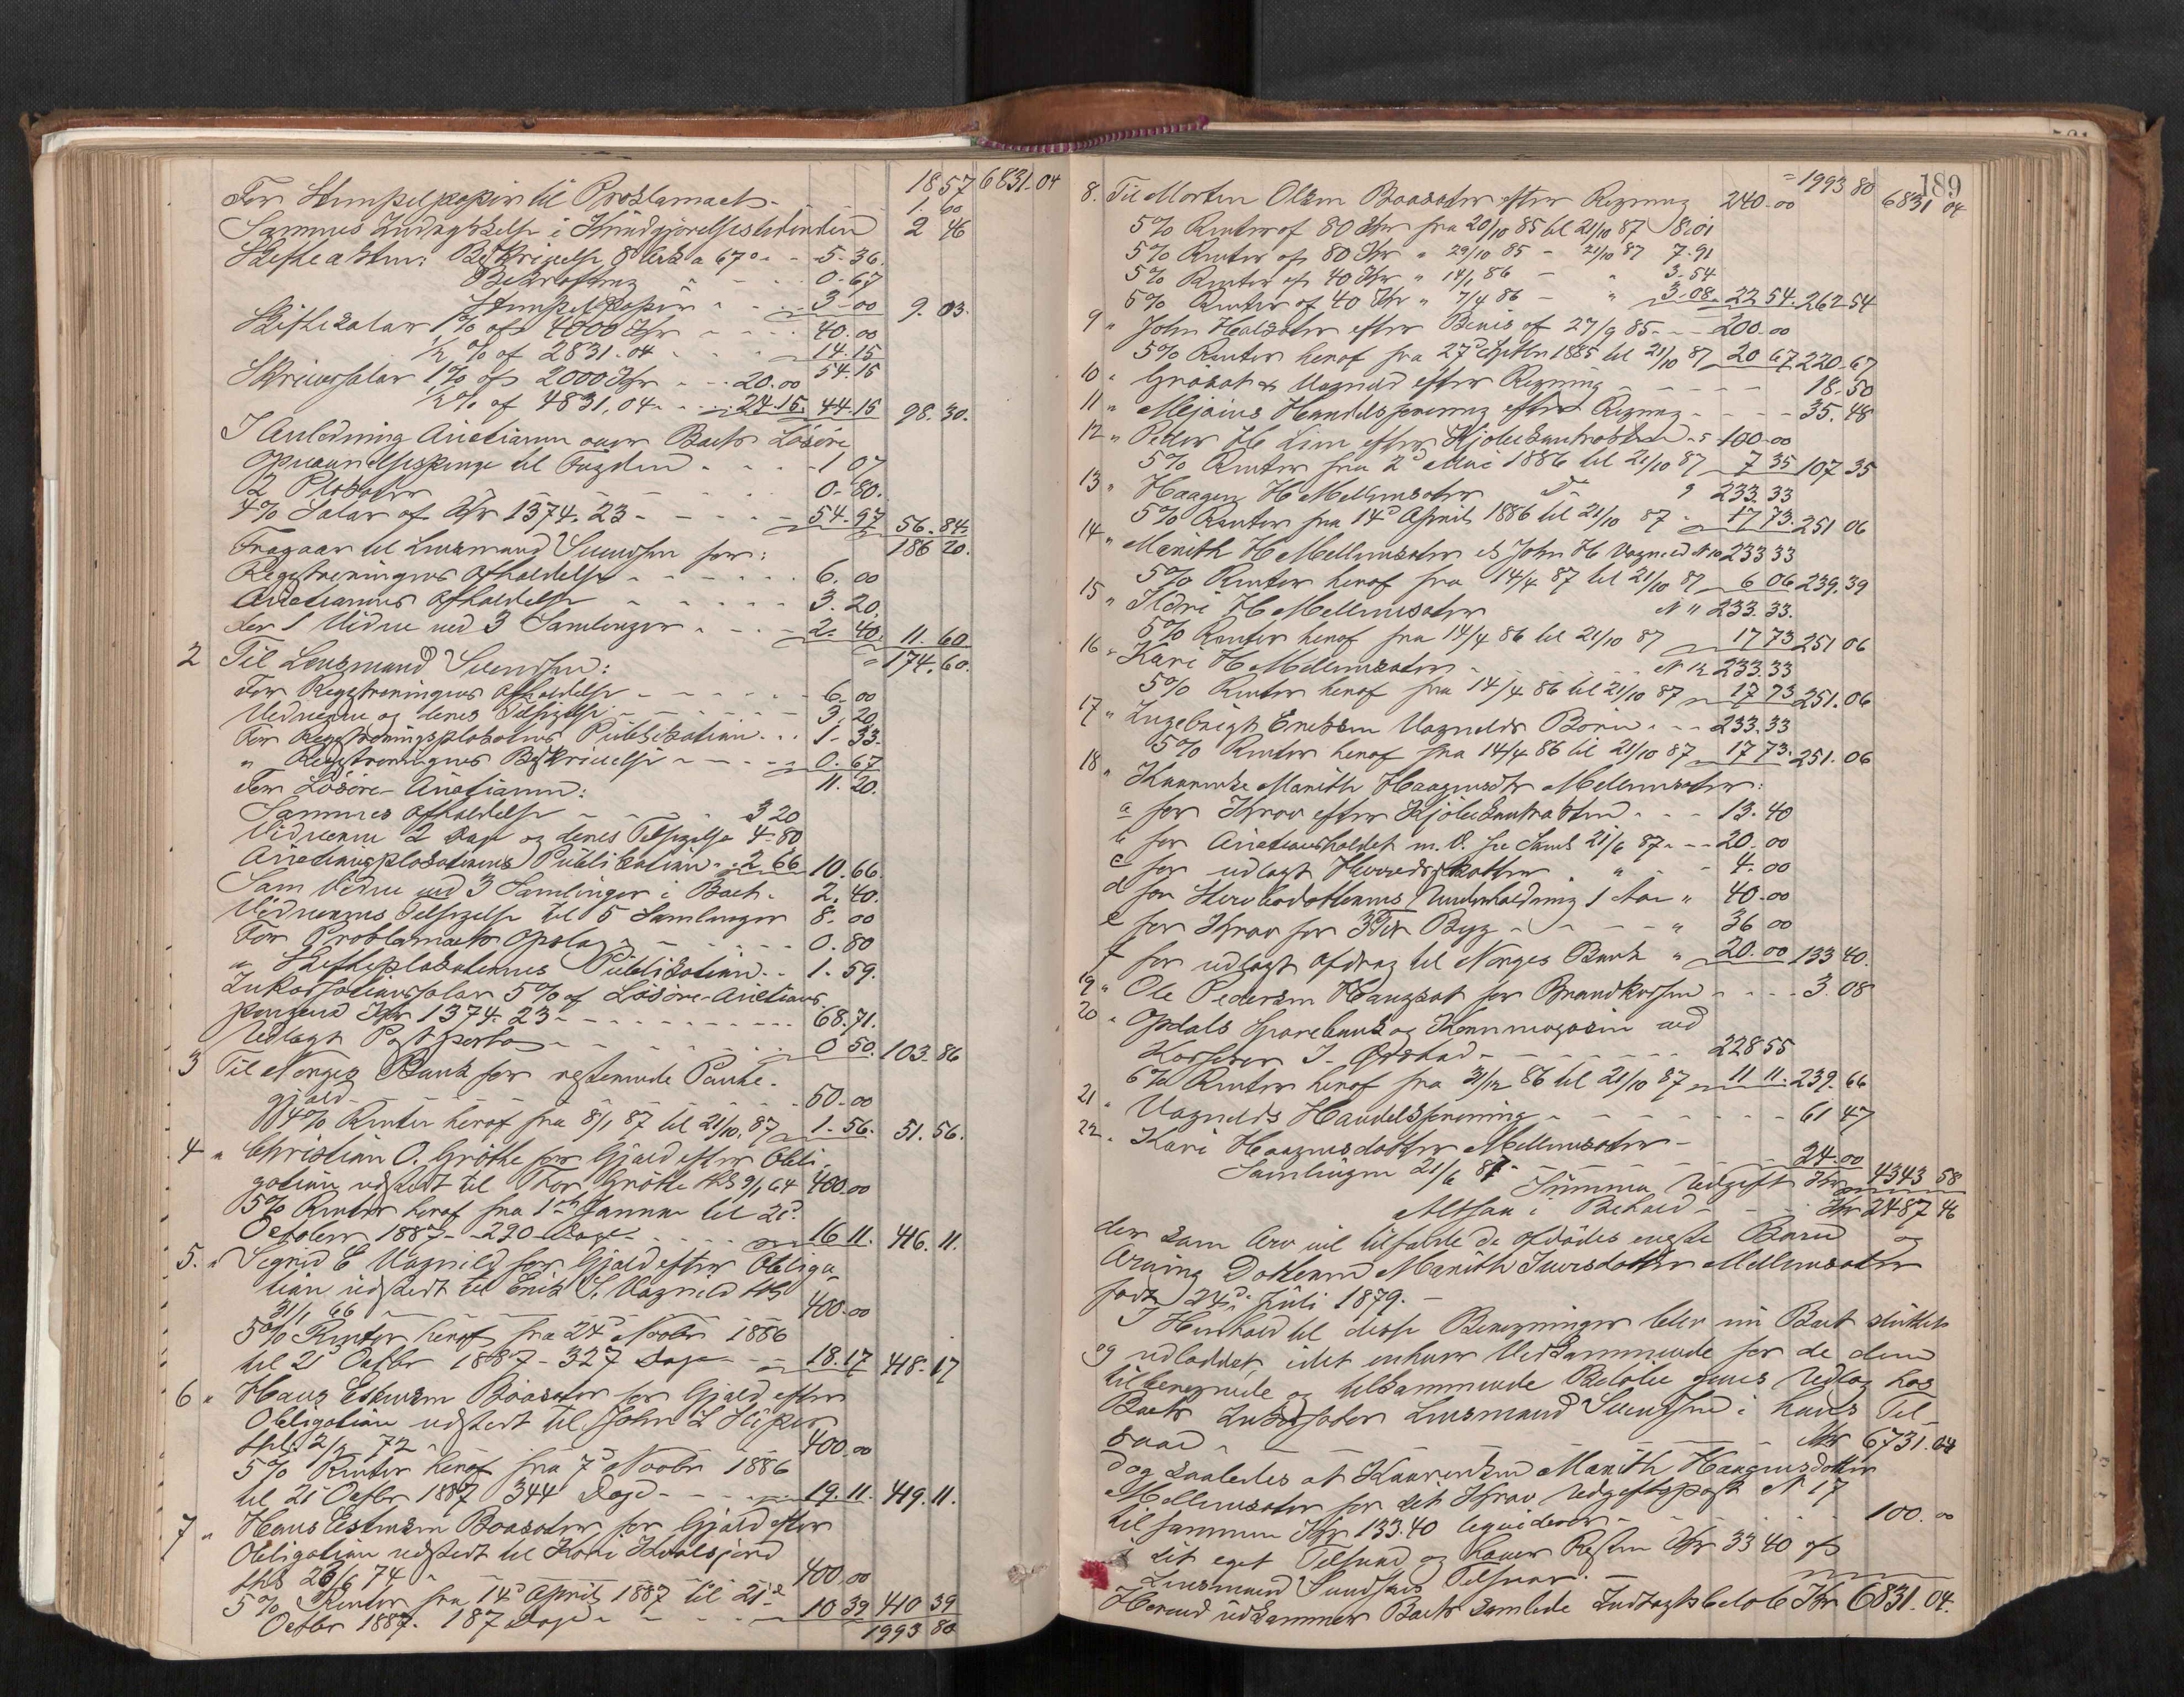 1857 6831.04
For Stempelpapir til Proklamaet - 1. 60
Sammes Indrykkelse i Kundgjørelsestidenden 2 46
Skifteakten: Beskrivelse 8 Ark a 67 ø - 5-36.
Bekræftning - 0-67
Stempelpapir - 3-00 9. 03.
Skiftesalar 1% af 4000 Kr - 40.00
1/2 % af 2831.04 - 14.15
54.15
Skriversalar 1% af 2000 Kr - 20.00
1/2% af 4831,04 - 24.15. 44.15 98.30.
I Anledning Auctionen over Boets Løsøre
- til Fogden - 1 07
2 Plakater - 0-80.
4% Salar af Kr 1374.23 - 54.97 56.84.
186 20.
Fragaar til Lensmand Svendsen for:
Registreringens Afholdelse - 6. 00
Auctionens Afholdelse - 3.20.
for 1 Vidne ved 3 Samlinger - 2. 40. 11.60
2 Til Lensmand Svendsen: = 174.60.
For Registreringens Afholdelse - 6.00
Vidnerne og deres Tilsigelse - 3.20
For Registreringsplakatens Publikation - 1-33.
" Registreringens Beskrivelse - 0.67
11.20.
For Løsøre-Auctionen:
Sammes Afholdelse - 3 20
Vidnerne 2 Dage og deres Tilsigelse 4-80
Auctionsplakatens Publikation - 2 66 10.66.
Som Vidne ved 3 Samlinger i Boet - 2.40.
Vidnernes Tilsigelse til 5 Samlinger 8.00
For Proklamaets Opslag - 0.80
" Skifteplakaternes Publikation - 1.59.
Inkassationssalar 5% af Løsøre-Auctions-
pengene Kr 1374.23 - 68.71.
Udlagt Postporto - 0 50. 103.86
3 Til Norges Bank for resterende Pante-
gjæld - 50.00
4% Renter heraf fra 8/1 87 til 21/10 87 - 1.56. 51.56.
4 " Christian O. Grøthe for Gjæld efter Obli-
gation udstedt til Thor Grøthe 9/1 64 400.00
5% Renter heraf fra 1st Januar til 21d
October 1887 - 290 Dage - 16 11. 416.11.
5. " Sigrid E Vognild for Gjæld efter Obliga-
tion udstedt til Erik S. Vognild
31/1 66 - 400.00
5% Renter heraf fra 24d Novbr 1886
til 21 Octbr 1887 - 327 Dage - 18.17 418.17
6 " Hans Estensen Bøasæter for Gjæld efter
Obligation udstedt til John L
thl 2/2 72 - 400.00
5% Renter heraf fra 7d Novbr 1886
til 21 Octbr 1887 344 Dage - 19.11. 419.11.
7 " Hans Estensen Bøasæter for Gjæld efter
Obligation udstedt til Kari
thl 26/6 74 - 400.00
5% Renter fra 14d April 1887 til 21d
Octbr 1887. 187 Dage - 10 39 410 39
1993 80
189
= 1993 80 6831 04
8. Til Morten Olsen Bøasæter efter Regning 240.00
5% Renter af 80 Kr fra 20/10 85 til 21/10 87 8.01
5% Renter af 80 Kr " 29/10 85 - 21/10 87 7.91
5% Renter af 40 Kr " 14/1 86 - " 3.54
5% Renter af 40 Kr " 7/4 86 - " 3.08. 22 54. 262 54
9 " John Halsæter efter Bevis af 27/9 85 - 200.00
5% Renter heraf fra 27d Septbr 1885 til 21/10 87 20 67 220.67
10 " Vognild efter Regning - 18.50
11 " Mejeriets Handelsforening efter Regning - 35.48
12 " Peder H Lien efter Kjøbekontrakten - 100.00
5% Renter fra 2d Mai 1886 til 21/10 87 7 35 107 35
13 " Haagen H Mellemsæter do 9 233.33
5% Renter fra 14d April 1886 til 21/10 87 17 73. 251 06
14 " Marith H Mellemsæter John H Vognild N 10 233 33
5% Renter heraf fra 14/4 87 til 21/10 87 6 06 239.39
15 " Ildri H Mellemsæter N 11 233.33.
5% Renter heraf fra 14/4 86 til 21/10 87 17 73 251 06
16 " Kari H Mellemsæter - N 12 233.33
5% Renter heraf fra 14/4 86 til 21/10 87 17 73 251.06
17 " Ingebrigt Eriksen Vognilds Børn - 233.33
5% Renter heraf fra 14/4 86 til 21/10 87 17 73. 251.06
18 " Marith Haagensdtr Mellemsæter:
a for Krav efter Kjøbekontrakten - 13.40
b for Auctionsholdet m. V. 21/6 87 - 20.00
c for udlagt Herredsskatter " - 4.00
d for Underholdning 1 Aar " 40.00
e for Krav for 3 Tdr Byg - " 36 00
f for udlagt Afdrag til Norges Bank " 20.00 133 40.
19 " Ole Pedersen for Brandkassen - 3.08
20 " Opdals Sparebank og Kornmagasin ved
Kasserer J. - 228 55
6% Renter heraf fra 31/12 86 til 21/10 87 11 11. 239.66
21 " Vognilds Handelsforening - 61 47
22 " Kari Haagensdatter Mellemsæter -
Samlingen 21/6 87 - 24.00
Summa Udgift Kr 4343 58
Altsaa i Behold - Kr 2487 46
der som Arv vil tilfalde de afdødes eneste Barn og
Arving Datteren Marith Iversdatter Mellemsæter
født 24de Juli 1879. -
I Henhold til disse Beregninger blev nu Boet sluttet
og udloddet, idet enhver Vedkommende for de dem
tilberegnede og tilkommende Beløb gives Udlæg hos
Boets Inkassator Lensmand Svendsen i hans Til-
svar - Kr 6731.04
dog saaledes at Marith Haagensdatter
Mellemsæter for sit Krav Udgiftspost N 17
tilsammen Kr 133.40 - 100.00
sit eget Tilsvar og Resten Kr 33 40 af
Lensmand Svendsens Tilsvar. -
Herved udkommer Boets samlede Indtægtsbeløb Kr 6831.04.